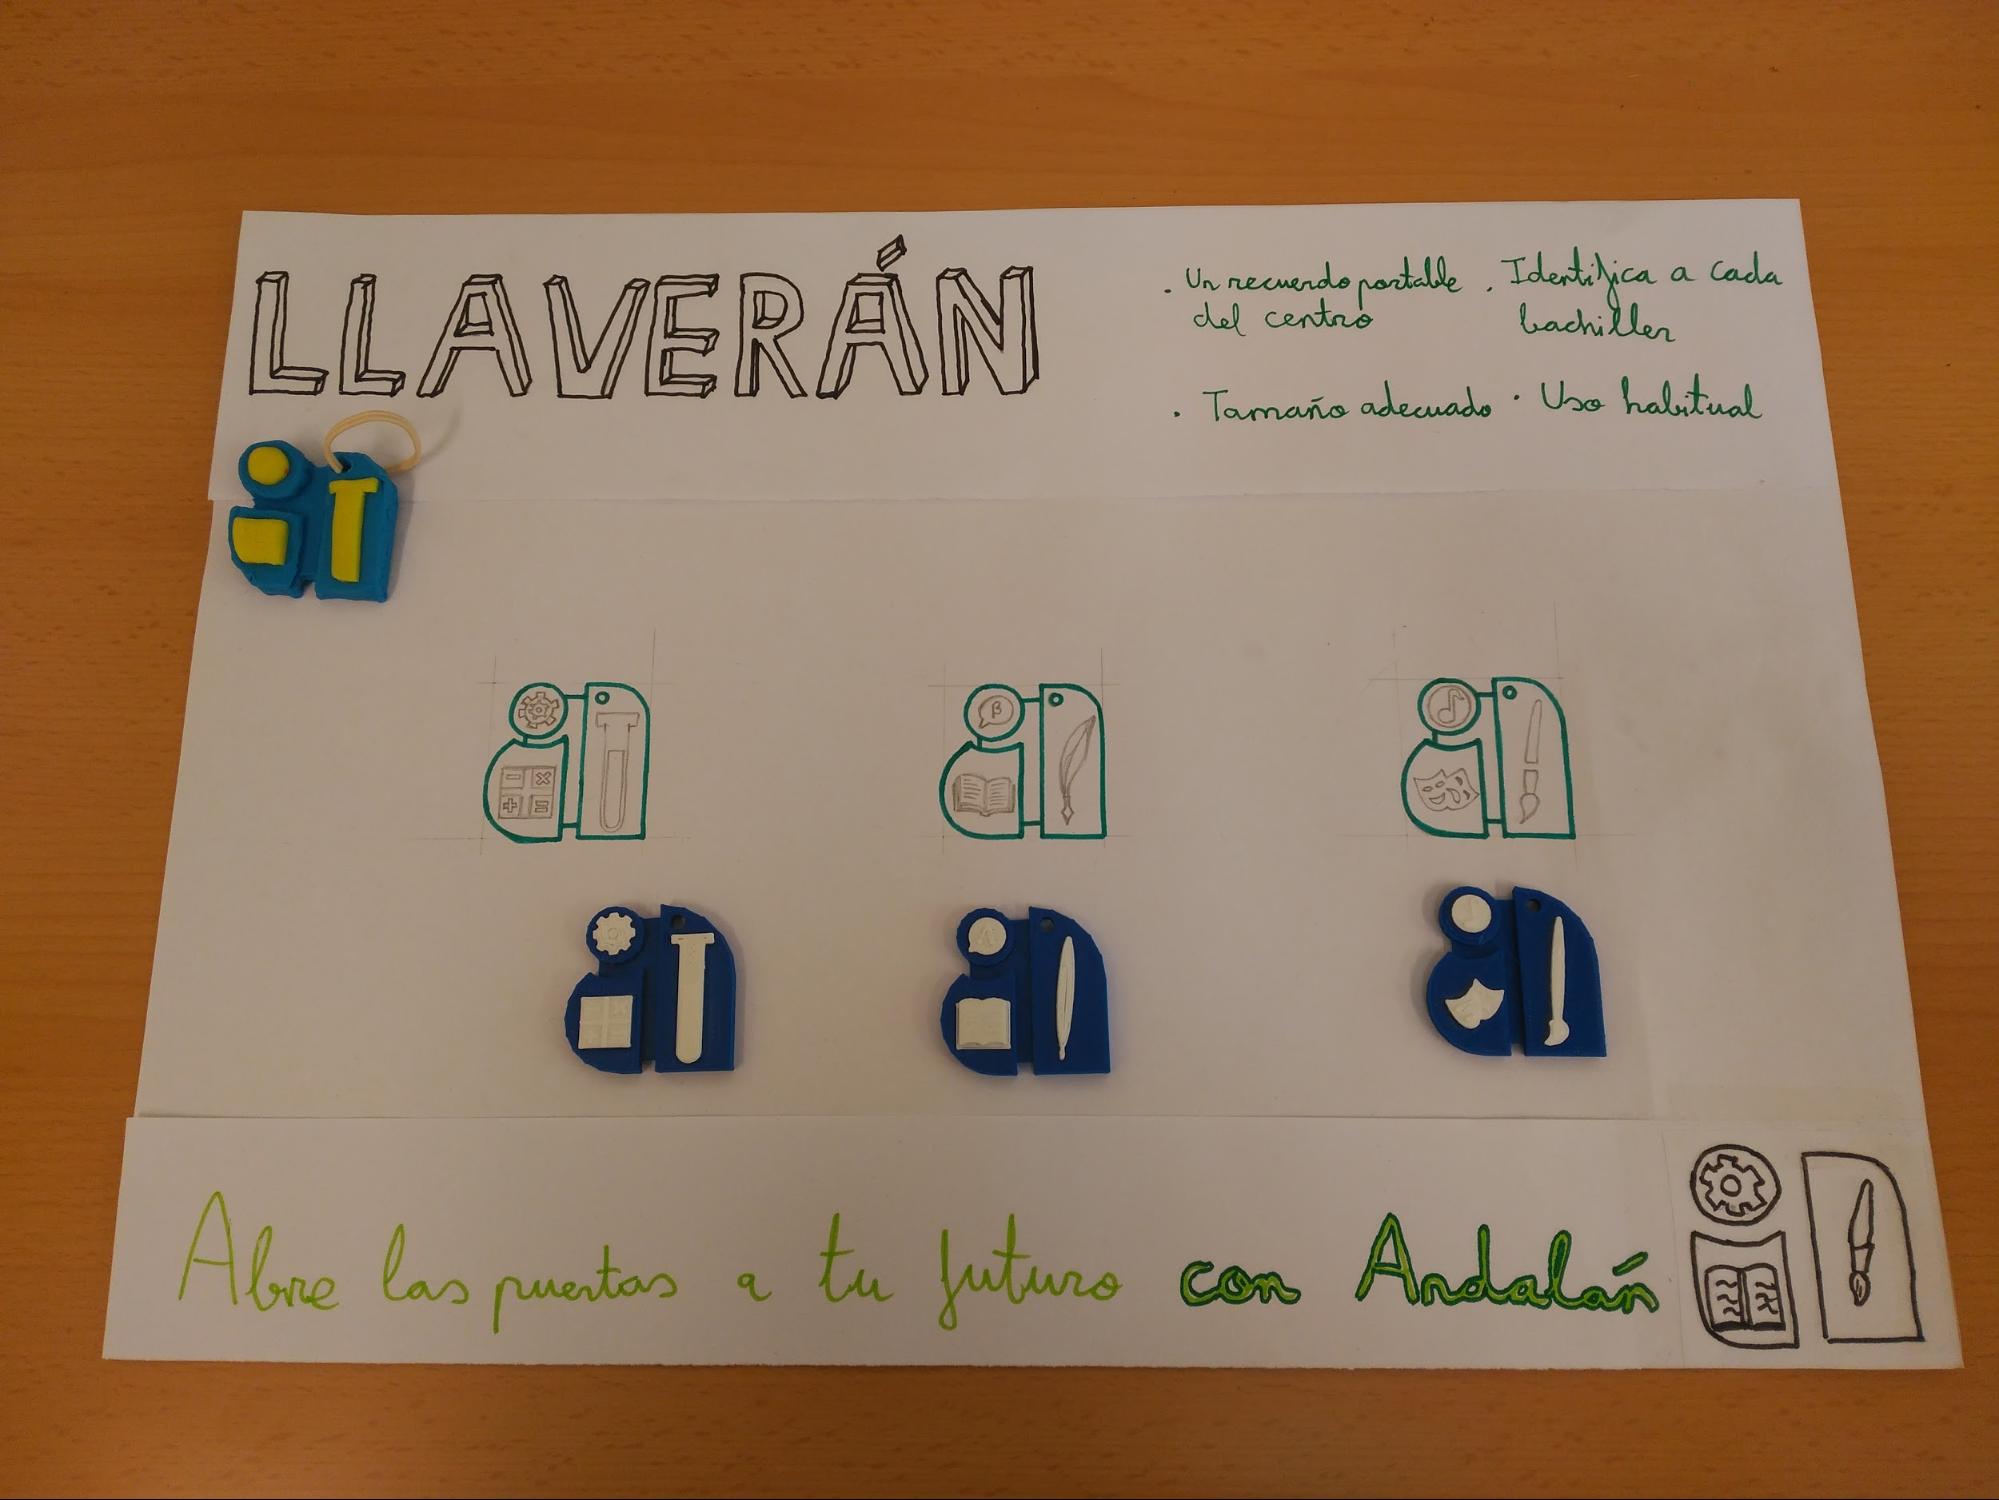 LLAVERÁN
. Un recuerdo portable
del centro
. Identifica a cada
bachiller
. Tamaño adecuado
. Uso habitual
Abre las puertas a tu futuro con Andalán